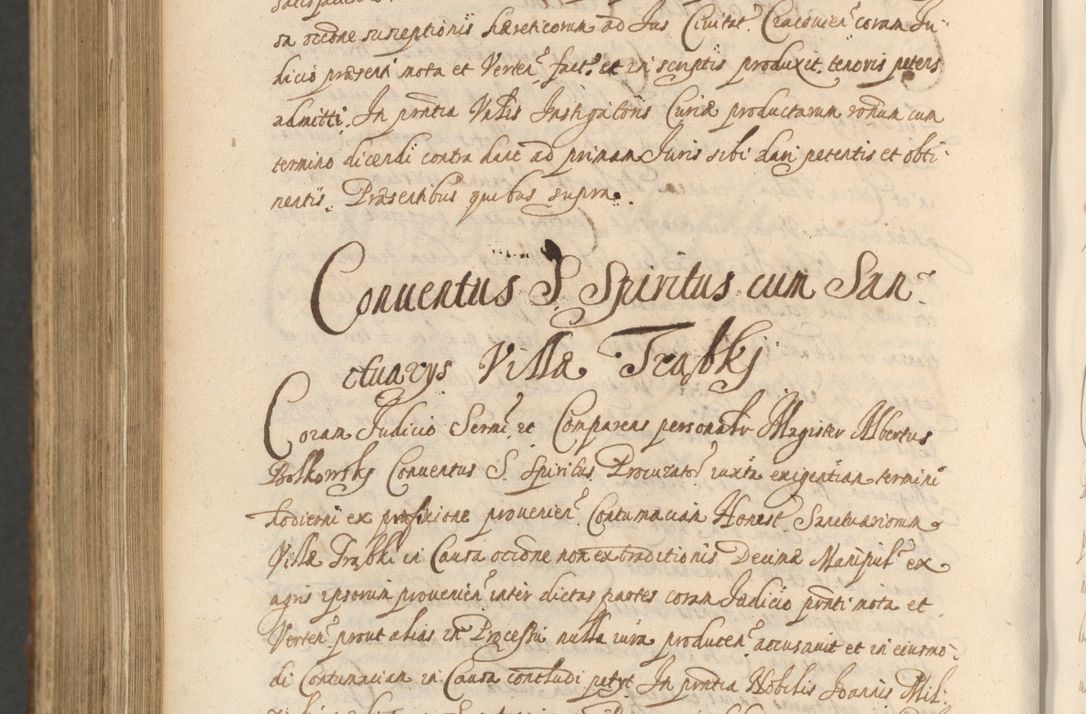 sa occne susceptionis hæreticorum ad Jus Civitat. Cracovien coram Ju
dicio præsenti mota et Verten. fact. et in scriptis produxit. tenoris petens
admitti. In pntia Instigatoris Curiæ productarum ronum cum
termino dicendi contra hanc ad primam Juris sibi dari petentis et obti
nentis. Præsentibus quibus supra.
Conventus S. Spiritus cum San-
ctuarys Villæ Trąbkj
Coram Judicio Serm. ac Comparens personalr Magister Albertus
Bolkowsky Conventus S. Spiritus Procurator iuxta exigentiam termini
hodierni ex provenien. Contumaciam Honest. Sanctuariorum
Villæ Trąbki in Causa occone non extraditionis Decimæ Manipul. ex
agris ipsorum provenien. inter dictas partes coram Judicio pnti mota et
Verten. prout alias in Processu nulla iura producen. accusavit et in eiusmo-
di Contumaciam in Causa concludi petyt. In pntia Nobilis Joannis Mil-